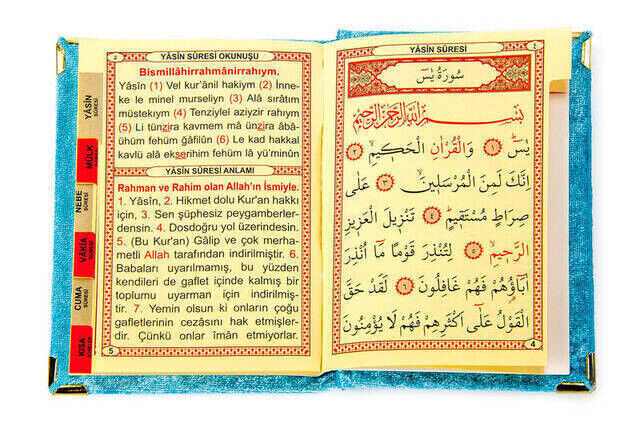 ٥
YÂSÎN SÛRESİ OKUNUŞU
Bismillâhirrahmânirrahıym.
Yâsîn (1) Vel kur'ânil hakiym (2) İnne-
ke le minel murseliyn (3) Alâ sırâtım
müstekıym (4) Tenziylel aziyzir rahıym
(5) Li tünzira kavmem mâ ünzira âbâ-
ühüm fehüm ğâfilûn (6) Le kad hakkal
kavlü alâ ekserihim fehüm lâ yü'minûn
YÂSÎN SÛRESİ ANLAMI
Rahman ve Rahim olan Allah'ın İsmiyle.
1. Yâsîn, 2. Hikmet dolu Kur'an hakkı
için, 3. Sen şüphesiz peygamberler-
densin. 4. Dosdoğru yol üzerindesin.
5. (Bu Kur'an) Gâlip ve çok merha-
metli Allah tarafından indirilmiştir. 6.
Babaları uyarılmamış, bu yüzden
kendileri de gaflet içinde kalmış bir
toplumu uyarman için indirilmiş-
tir. 7. Yemin olsun ki onların çoğu
gafletlerinin cezasını hak etmişler-
dir. Çünkü onlar îmân etmiyorlar.
5
YÂSÎN
SÛRESİ
MÜLK
NEBE
SÛRESİ
VÂKIA
SÛRESİ
CUMA
SÛRESİ
KISA
YÂSÎN SÛRESİ
٤
سُورَةُ يٰسٓ
بِسْمِ اللّٰهِ الرَّحْمٰنِ الرَّحِيمِ
يٰسٓ ﴿١﴾ وَالْقُرْاٰنِ الْحَكِيمِ ﴿٢﴾
اِنَّكَ لَمِنَ الْمُرْسَلِينَ ﴿٣﴾ عَلٰى
صِرَاطٍ مُسْتَقِيمٍ ﴿٤﴾ تَنْزِيلَ الْعَزِيزِ
الرَّحِيمِ ﴿٥﴾ لِتُنْذِرَ قَوْمًا مَٓا اُنْذِرَ
اٰبَٓاؤُهُمْ فَهُمْ غَافِلُونَ ﴿٦﴾ لَقَدْ حَقَّ
الْقَوْلُ عَلٰٓى اَكْثَرِهِمْ فَهُمْ لَا يُؤْمِنُونَ
4